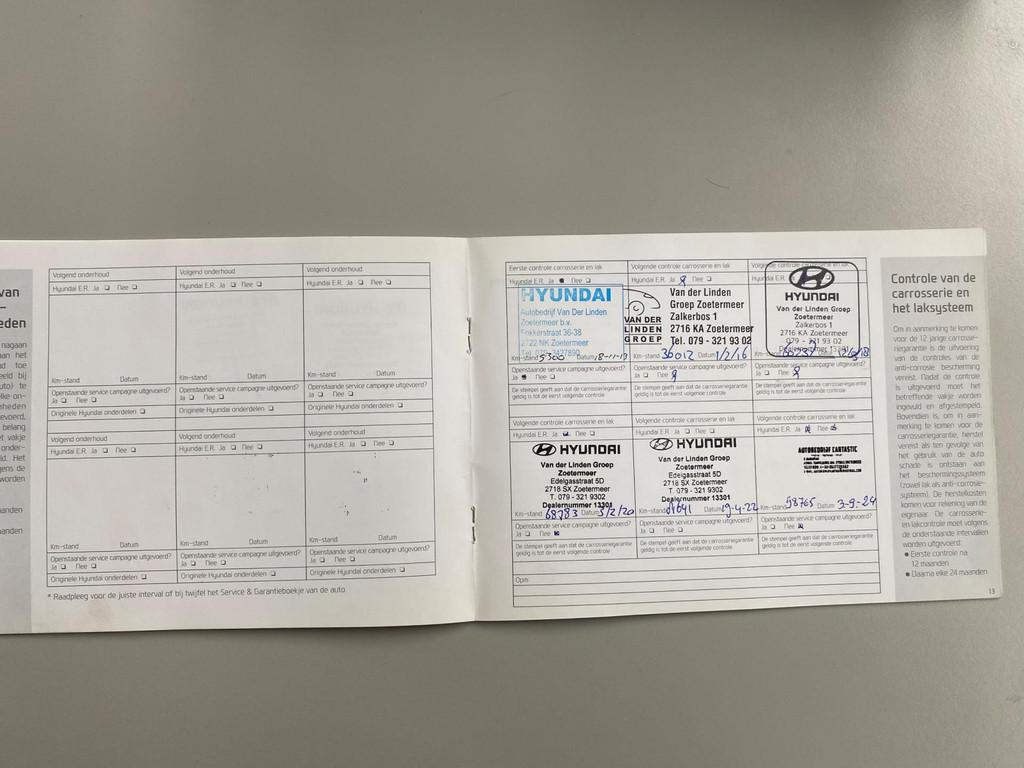 van
eden
nagaan
aan het
toe
bij
uto) te
lke on-
heden
evoerd,
belang
vakje
onder-
ld. Het
gens de
worden
anden
anden
Volgend onderhoud Volgend onderhoud Volgend onderhoud
Hyundai E.R. Ja ❏ Nee ❏ Hyundai E.R. Ja ❏ Nee ❏ Hyundai E.R. Ja ❏ Nee ❏
Km-stand Datum Km-stand Datum Km-stand Datum
Openstaande service campagne uitgevoerd? Openstaande service campagne uitgevoerd? Openstaande service campagne uitgevoerd?
Ja ❏ Nee ❏ Ja ❏ Nee ❏ Ja ❏ Nee ❏
Originele Hyundai onderdelen ❏ Originele Hyundai onderdelen ❏ Originele Hyundai onderdelen ❏
Volgend onderhoud Volgend onderhoud Volgend onderhoud
Hyundai E.R. Ja ❏ Nee ❏ Hyundai E.R. Ja ❏ Nee ❏ Hyundai E.R. Ja ❏ Nee ❏
Km-stand Datum Km-stand Datum Km-stand Datum
Openstaande service campagne uitgevoerd? Openstaande service campagne uitgevoerd? Openstaande service campagne uitgevoerd?
Ja ❏ Nee ❏ Ja ❏ Nee ❏ Ja ❏ Nee ❏
Originele Hyundai onderdelen ❏ Originele Hyundai onderdelen ❏ Originele Hyundai onderdelen ❏
* Raadpleeg voor de juiste interval of bij twijfel het Service & Garantieboekje van de auto.
Eerste controle carrosserie en lak
Hyundai E.R. Ja Nee ❏
HYUNDAI
Autobedrijf Van Der Linden
Zoetermeer b.v.
Fokkerstraat 36-38
2722 NK Zoetermeer
Km-stand 5300 Datum 8-11-13
Openstaande service campagne uitgevoerd?
Ja Nee ❏
De stempel geeft aan dat de carrosseriegarantie
geldig is tot de eerst volgende controle
Volgende controle carrosserie en lak
Hyundai E.R. Ja Nee ❏
VAN DER
LINDEN
GROEP
Van der Linden
Groep Zoetermeer
Zalkerbos 1
2716 KA Zoetermeer
Tel. 079 - 321 93 02
Km-stand 36012 Datum 1/2/16
Openstaande service campagne uitgevoerd?
Ja ❏ Nee
De stempel geeft aan dat de carrosseriegarantie
geldig is tot de eerst volgende controle
Volgende controle carrosserie en lak
Hyundai E.R.
HYUNDAI
Van der Linden Groep
Zoetermeer
Zalkerbos 1
2716 KA Zoetermeer
079 - 321 93 02
Dealernummer 13301
Openstaande service campagne uitgevoerd?
Ja ❏ Nee
De stempel geeft aan dat de carrosseriegarantie
geldig is tot de eerst volgende controle
Volgende controle carrosserie en lak
Hyundai E.R. Ja Nee ❏
HYUNDAI
Van der Linden Groep
Zoetermeer
Edelgasstraat 5D
2718 SX Zoetermeer
T. 079 - 321 9302
Dealernummer 13301
Km-stand 68783 Datum 5/2/20
Openstaande service campagne uitgevoerd?
Ja ❏ Nee
De stempel geeft aan dat de carrosseriegarantie
geldig is tot de eerst volgende controle
Volgende controle carrosserie en lak
Hyundai E.R. Ja ❏ Nee ❏
HYUNDAI
Van der Linden Groep
Zoetermeer
Edelgasstraat 5D
2718 SX Zoetermeer
T. 079 - 321 9302
Dealernummer 13301
Km-stand Datum 19-4-22
Openstaande service campagne uitgevoerd?
Ja ❏ Nee ❏
De stempel geeft aan dat de carrosseriegarantie
geldig is tot de eerst volgende controle
Volgende controle carrosserie en lak
Hyundai E.R. Ja Nee
AUTOBEDRIJF CARTASTIC
Km-stand 98765 Datum 3-9-24
Openstaande service campagne uitgevoerd?
Ja ❏ Nee
De stempel geeft aan dat de carrosseriegarantie
geldig is tot de eerst volgende controle
Opm.
Controle van de
carrosserie en
het laksysteem
Om in aanmerking te komen
voor de 12 jarige carrosse-
riegarantie is de uitvoering
van de controles van de
anti-corrosie bescherming
vereist. Nadat de controle
is uitgevoerd moet het
betreffende vakje worden
ingevuld en afgestempeld.
Bovendien is, om in aan-
merking te komen voor de
carrosseriegarantie, herstel
vereist als ten gevolge van
het gebruik van de auto
schade is ontstaan aan
het beschermingssysteem
(zowel lak als anti-corrosie-
systeem). De herstelkosten
komen voor rekening van de
eigenaar. De carrosserie-
en lakcontrole moet volgens
de onderstaande intervallen
worden uitgevoerd:
● Eerste controle na
12 maanden
● Daarna elke 24 maanden
13